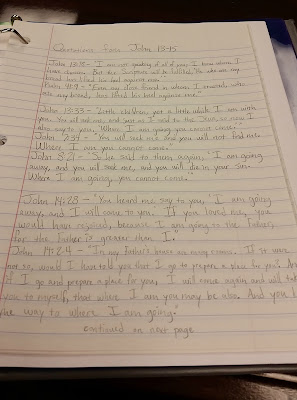 Quotations from John 13-15
John 13:18 - "I am not speaking of all of you; I know whom I
have chosen. But the Scripture will be fulfilled, 'He who ate my
bread has lifted his heel against me.'"
Psalm 41:9 - "Even my close friend in whom I trusted, who
ate my bread, has lifted his heel against me."
John 13:33 - "Little children, yet a little while I am with
you. You will seek me, and just as I said to the Jews, so now I
also say to you, 'Where I am going you cannot come.'
John 7:34 - "You will seek me and you will not find me.
Where I am you cannot come."
John 8:21 - So he said to them again, "I am going
away, and you will seek me, and you will die in your sin.
Where I am going, you cannot come."
John 14:28 - "You heard me say to you, 'I am going
away, and I will come to you.' If you loved me, you
would have rejoiced, because I am going to the Father,
for the Father is greater than I.
John 14:2-4 - "In my Father's house are many rooms. If it were
not so, would I have told you that I go to prepare a place for you? And
if I go and prepare a place for you, I will come again and will take
you to myself, that where I am you may be also. And you
the way to where I am going."
continued on next page